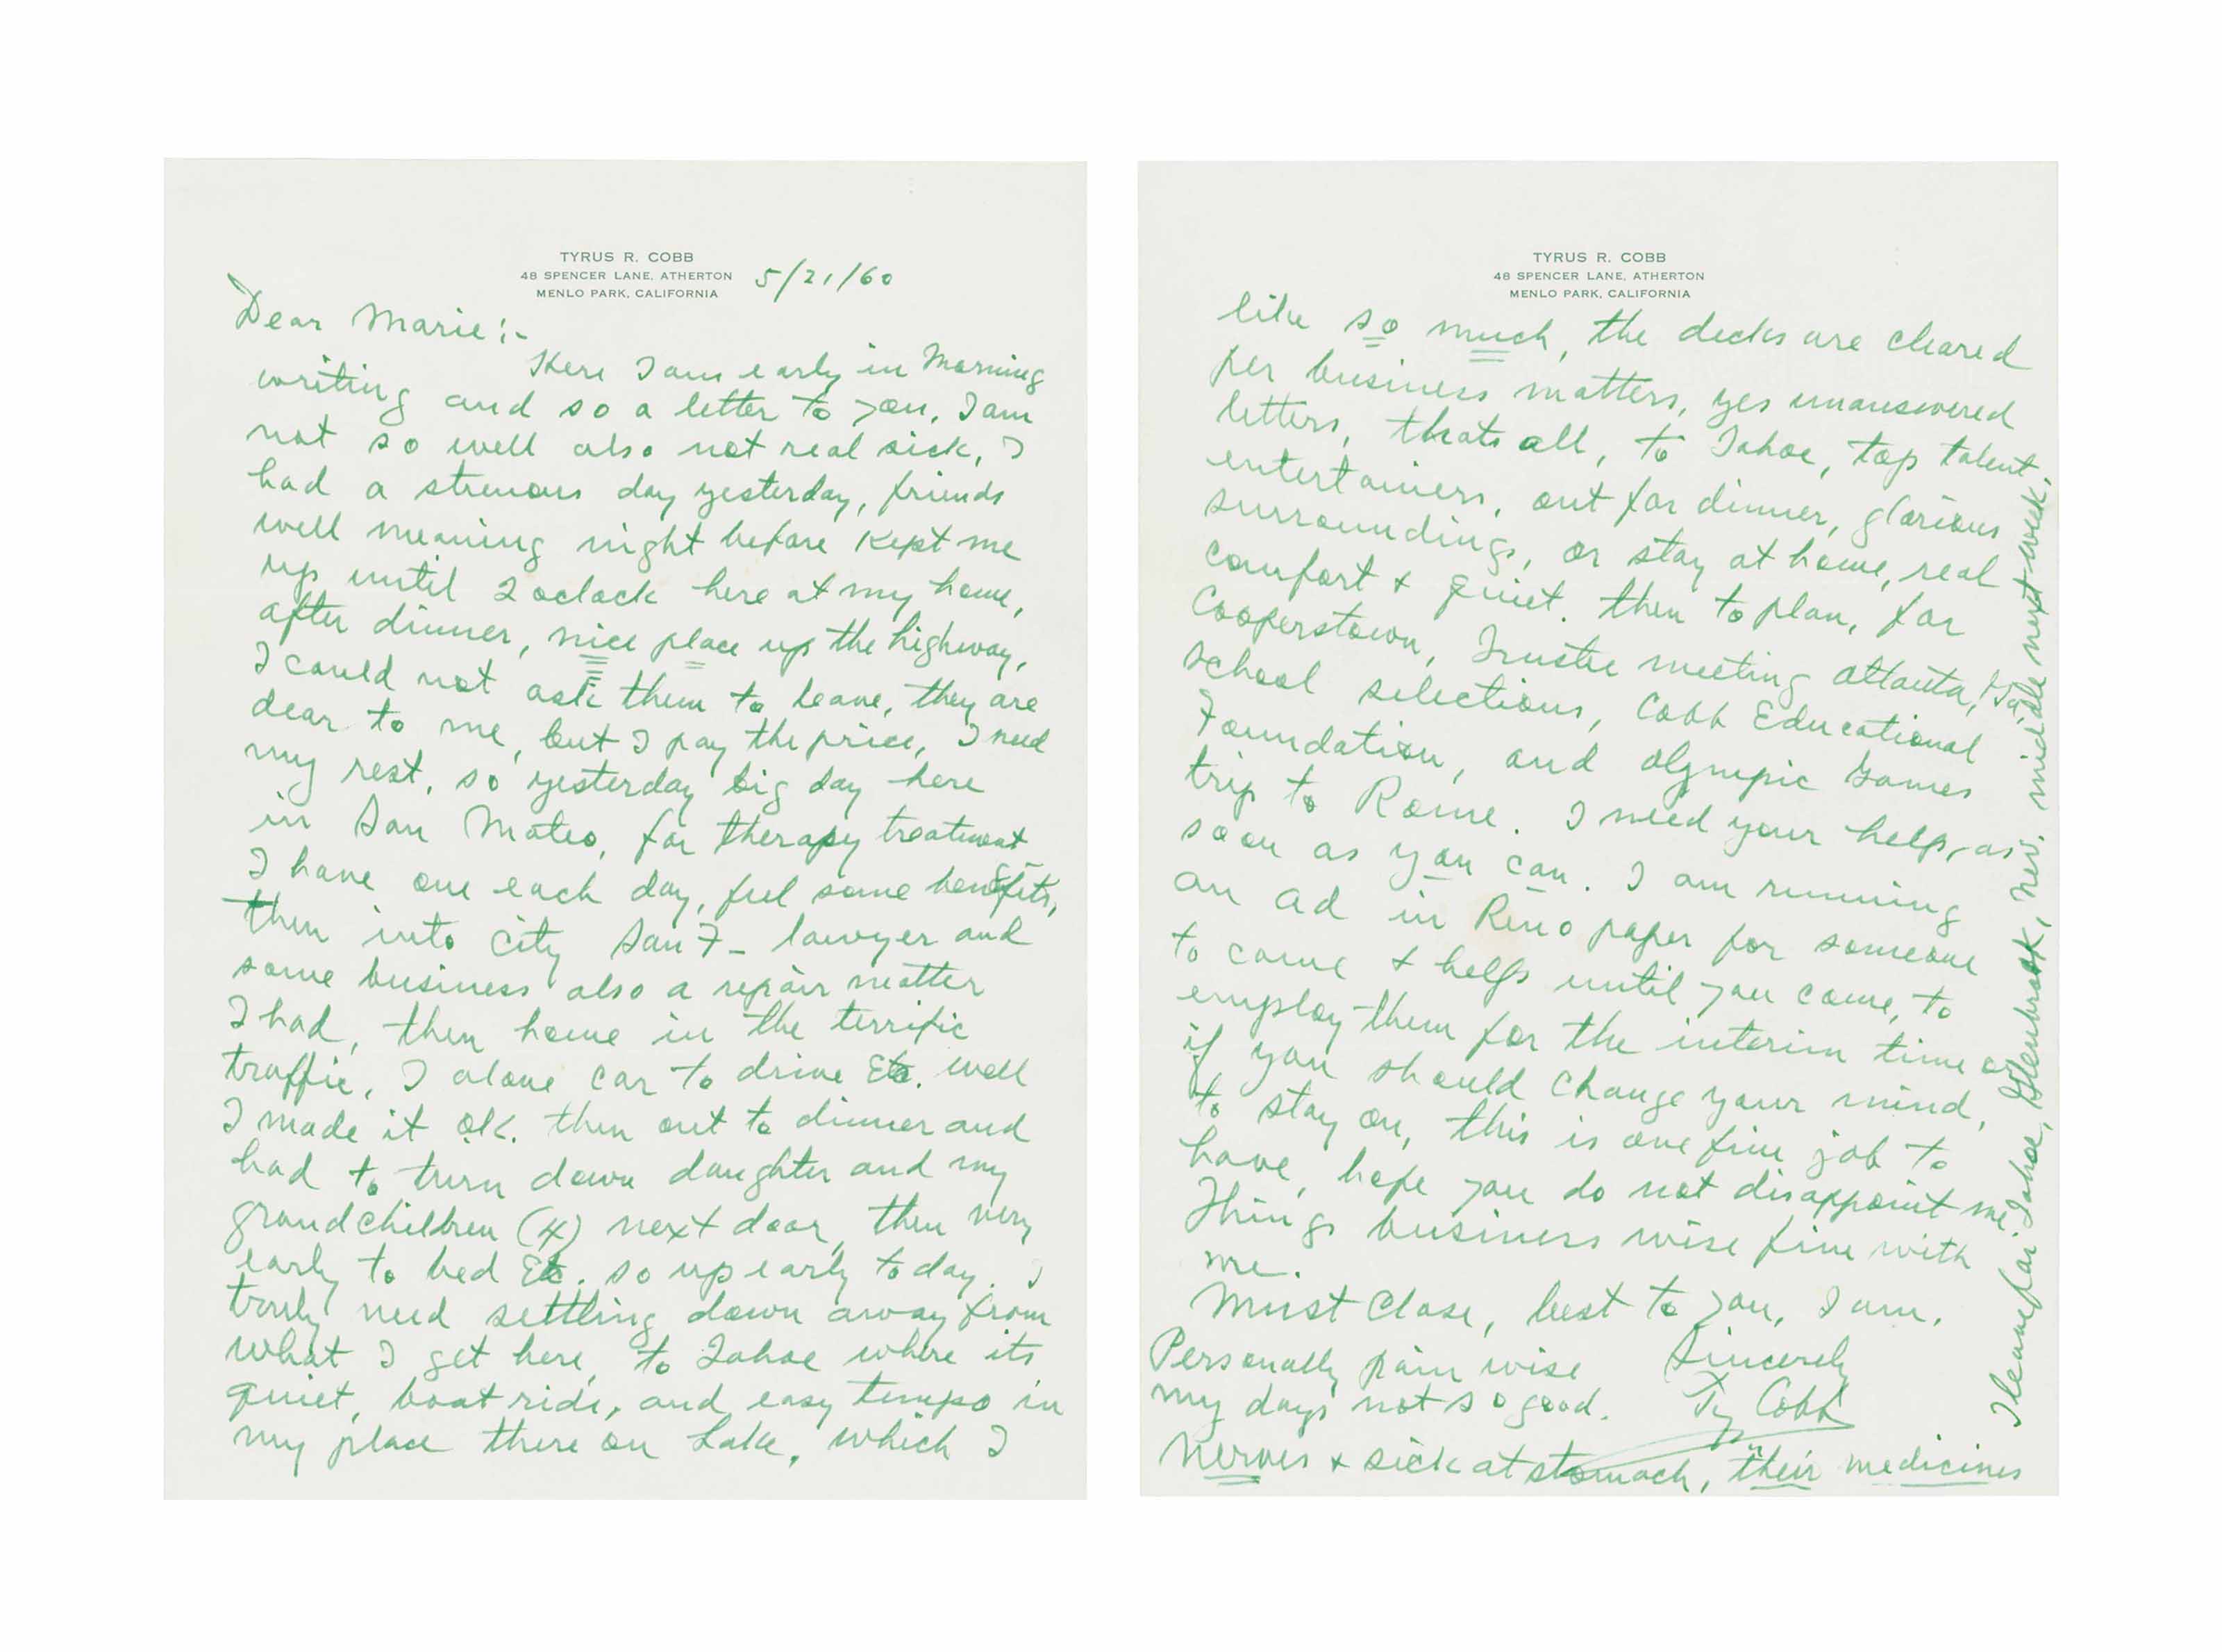 TYRUS R. COBB
48 SPENCER LANE, ATHERTON
MENLO PARK, CALIFORNIA
5/21/60
Dear Marie:-
Here I am early in Morning
writing and so a letter to you, I am
not so well also not real sick, I
had a strenous day yesterday, friends
well meaning night before kept me
up until 2 oclock here at my home,
after dinner, nice place up the highway,
I could not ask them to leave, they are
dear to me, but I pay the price, I need
my rest, so yesterday big day here
in San Mateo, for therapy treatment
I have one each day, feel some benefits,
then into city San F- lawyer and
some business also a repair matter
I had, then home in the terrific
traffic, I alone car to drive Etc. well
I made it ok. then out to dinner and
had to turn down daughter and my
grandchildren (4) next door, then very
early to bed Etc. so up early today. I
truly need settling down away from
what I get here, to Tahoe where its
quiet, boat ride, and easy tempo in
my place there on Lake, which I
TYRUS R. COBB
48 SPENCER LANE, ATHERTON
MENLO PARK, CALIFORNIA
like so much, the decks are cleared
per business matters, yes unanswered
letters, thats all, to Tahoe, top talent
entertainers, out for dinner, glorious
surroundings, or stay at home, real
comfort & quiet. then to plan, for
Cooperstown, Trustee meeting Atlanta, Ga
school selections, Cobb Educational
Foundation, and Olympic Games
trip to Rome. I need your help, as
soon as you can. I am running
an ad in Reno paper for someone
to come & help until you come, to
employ them for the interim time or
if you should change your mind,
to stay on, this is one fine job to
have, hope you do not disappoint me.
Things business wise fine with
me.
Must Close, best to you, I am,
Sincerely
Ty Cobb
Personally pain wise
my days not so good.
Nerves & sick at stomach, "their medicines
I leave for Tahoe, Glenbrook, Nev. middle next week.